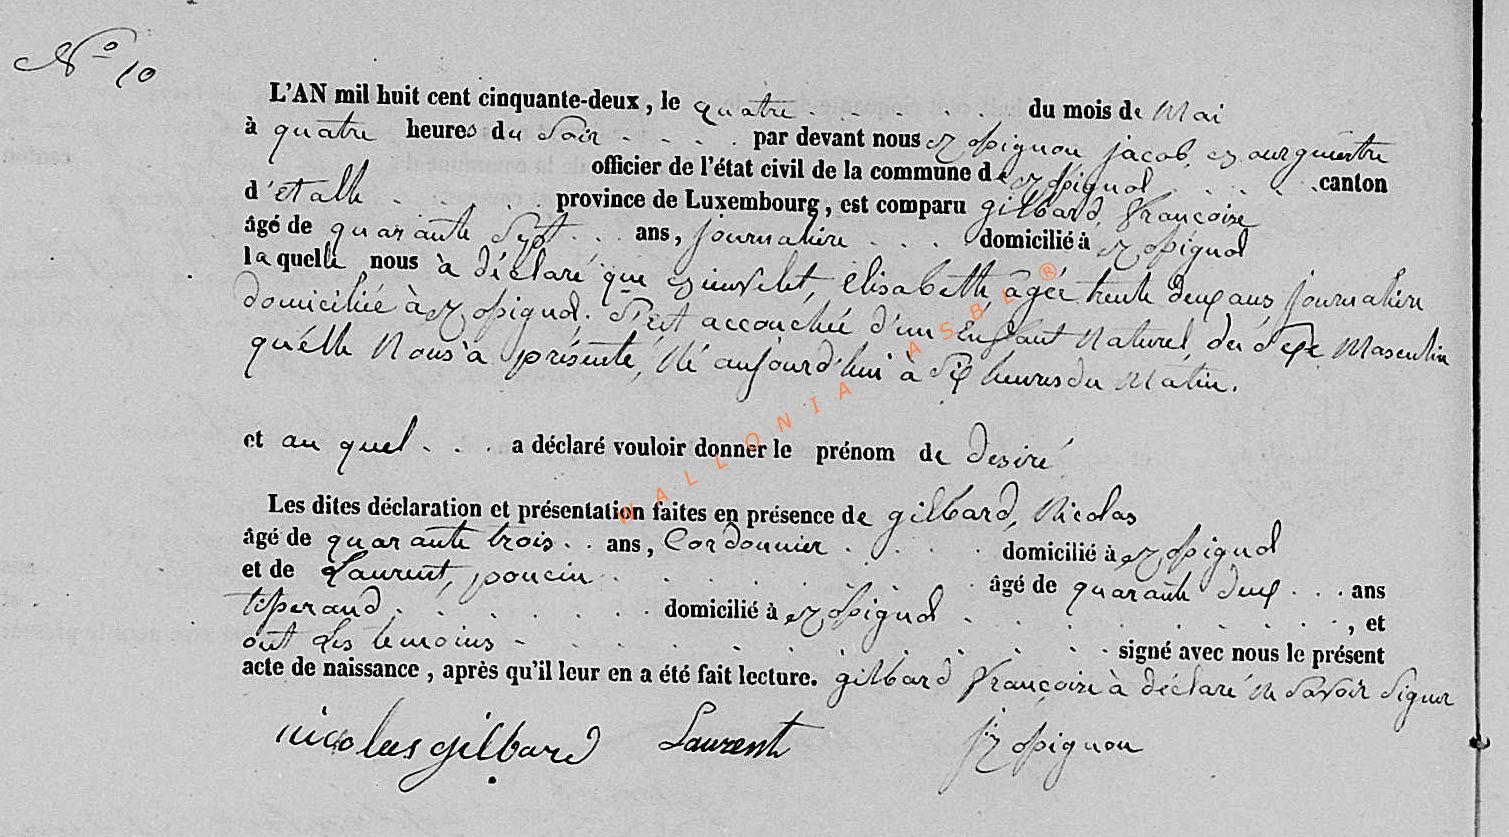 No 10
L'AN mil huit cent cinquante-deux, le quatre . . . . . . du mois de Mai
à quatre heures du Soir . . . . par devant nous Rossignon, jacob, Bourgmestre
officier de l'état civil de la commune de Rossignol . . . . . canton
d'étalle . . . . province de Luxembourg, est comparu gilbard, françoise
âgé de quarante Sept . . . ans, journalière . . . domicilié à Rossignol
laquelle nous à déclaré que Elisabeth, âgée trente deux ans, journalière
domiciliée à Rossignol. S'est accouchée d'un Enfant Naturel, du Sexe Masculin
qu'elle Nous à présenté, Né aujourd'hui à Six heures du Matin.
et au quel . . . a déclaré vouloir donner le prénom de Desiré
Les dites déclaration et présentation faites en présence de gilbard, Nicolas
âgé de quarante trois . . ans, Cordonnier . . . . domicilié à Rossignol
et de Laurent, poncin . . . . . . . . âgé de quarante deux . . . ans
tisserand . . . . . . . domicilié à Rossignol . . . . . . . . . , et
ont les temoins - . . . . . . . . . . . signé avec nous le présent
acte de naissance, après qu'il leur en a été fait lecture. gilbard françoise à déclaré ne Savoir Signer
nicolas gilbard Laurent j Rossignon
WALLONIA ASBL ®